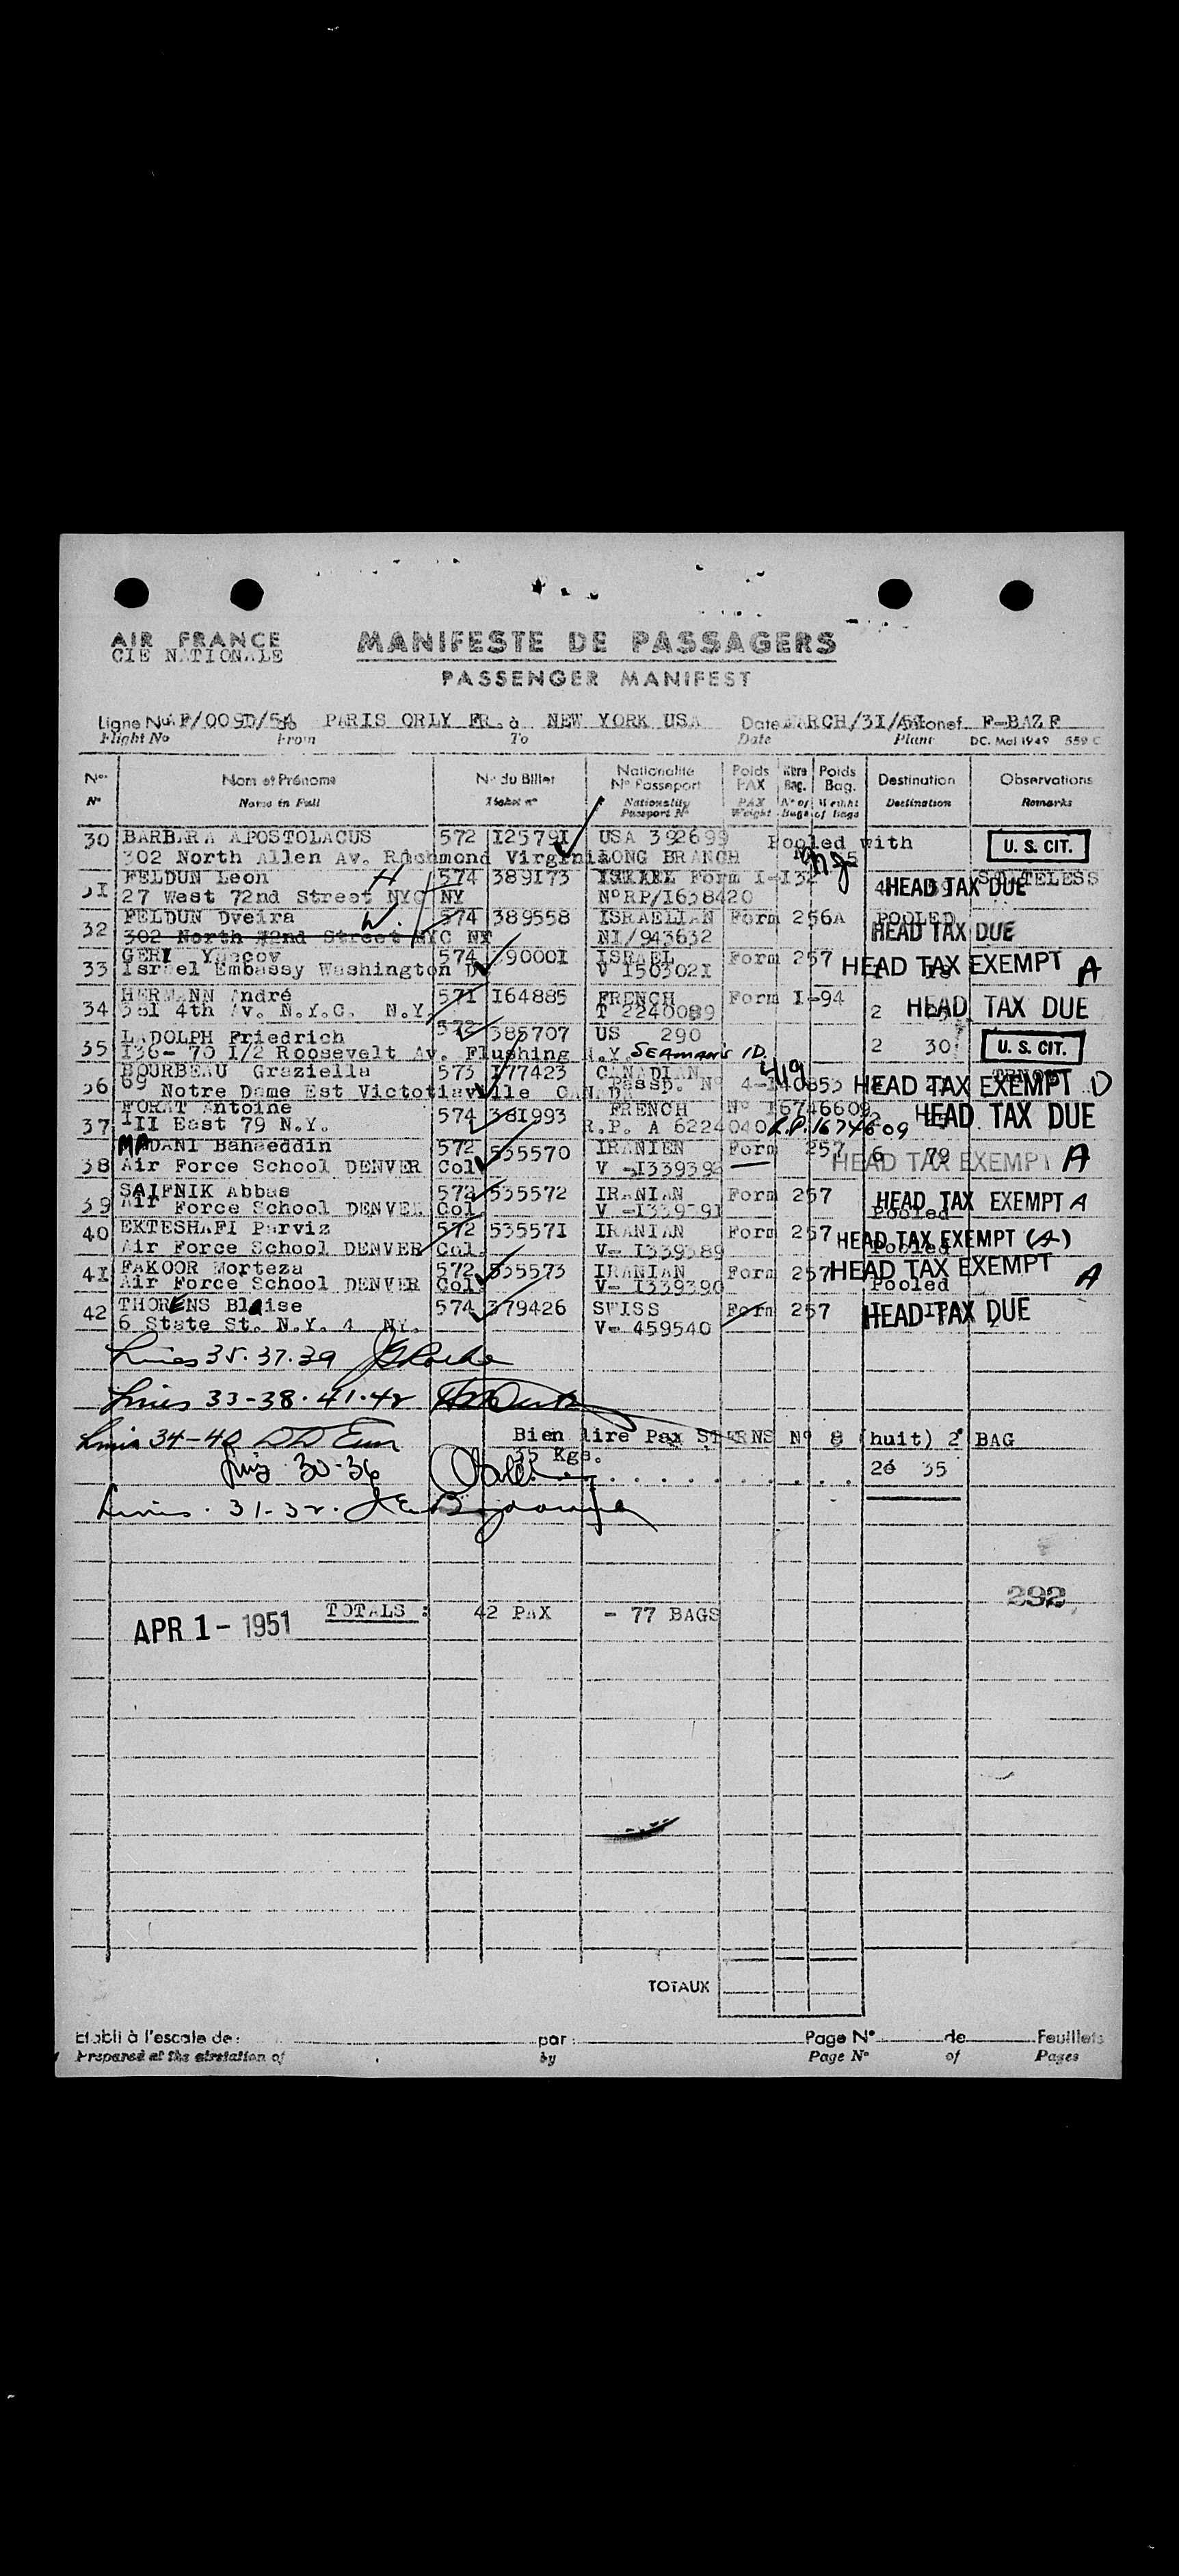 AIR FRANCE
CIE NATIONALE
MANIFESTE DE PASSAGERS
PASSENGER MANIFEST
Ligne No. F/009D/ PARIS ORLY FR. à NEW YORK USA Date MARCH/3I/ Avion F-BAZF
Flight No From To Date Plane DC. Mai 1949 559 C
Nos Nom et Prénoms No du Billet Nationalité No Passeport Poids PAX Nbre Bag. Poids Bag. Destination Observations
No Name in Full Ticket no Nationality Passport No PAX Weight No of Bags Weight of bags Destination Remarks
30 BARBARA APOSTOLACUS 572 I2579I USA 392699 Pooled with U. S. CIT.
302 North Allen Av. Richmond Virginia LONG BRANCH
3I FELDUN Leon H 574 389I73 ISRAEL Form I-I32 HEAD TAX DUE STATELESS
27 West 72nd Street NYC NY N° RP/I638420
32 FELDUN Dveira W. 574 389558 ISRAELIAN Form 256A POOLED HEAD TAX DUE
302 North 72nd Street NYC NY NI/943632
33 GERI Yaacov 574 79000I ISRAEL Form 257 HEAD TAX EXEMPT A
Israel Embassy Washington DC V I50302I
34 HERMANN André 57I I64885 FRENCH Form I-94 2 HEAD TAX DUE
38I 4th Av. N.Y.C. N.Y. T 2240089
35 LADOLPH Friedrich 572 385707 US 290 2 30 U. S. CIT.
I36- 70 I/2 Roosevelt Av. Flushing N.Y. SEAMAN'S ID.
36 BOURBEAU Graziella 573 I77423 CANADIAN 419 HEAD TAX EXEMPT D
69 Notre Dame Est Victotiaville CANADA Passp. N° 4-I40853
37 FORAT Antoine 574 38I993 FRENCH N° I6746609 HEAD TAX DUE
III East 79 N.Y. R.P. A 6224040 R.P. 1674609
38 MADANI Bahaeddin 572 535570 IRANIEN Form 257 6 79 HEAD TAX EXEMPT A
Air Force School DENVER Col V -I339392
39 SAIFNIK Abbas 572 535572 IRANIAN Form 257 HEAD TAX EXEMPT A
Air Force School DENVER Col V -I33939I Pooled
40 EKTESHAFI Parviz 572 53557I IRANIAN Form 257 HEAD TAX EXEMPT (A)
Air Force School DENVER Col. V- I339389 Pooled
4I FAKOOR Morteza 572 535573 IRANIAN Form 257 HEAD TAX EXEMPT A
Air Force School DENVER Col. V- I339390 Pooled
42 THORENS Blaise 574 379426 SWISS Form 257 HEAD TAX DUE
6 State St. N.Y. 4 NY. V- 459540
Lines 35. 37. 39
Lines 33-38. 41. 42
Lines 34-40
Bien lire Pax STERNS N° 8 (huit) 2 BAG
35 Kgs.
Lines 30-36
26 35
Lines. 31-32.
292
APR 1 - 1951 TOTALS : 42 PAX - 77 BAGS
TOTAUX
Etabli à l'escale de: par : Page N° de Feuillets
Prepared at the airstation of by Page N° of Pages